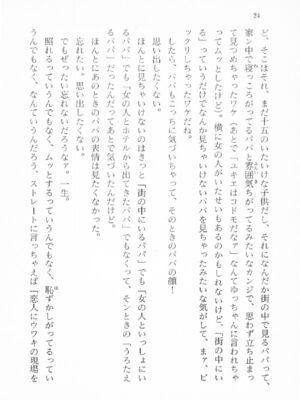 24
ど、そこはそれ、まだ十五のいたいけな子供だし、それになんだか街の中で見るパパって、
家ン中で寝っころがってるパパと雰囲気がちがってるみたいなカンジで、思わず立ち止まっ
て見つめちゃったワケ(あとで「ユキエはコドモだなァ」なんてゆっちゃんに言われちゃ
ってムッとしたけど)。横に女の人がいたせいもあるのかもしれないけど、「街の中にい
る」っていうだけでなんか見ちゃいけないパパを見ちゃったみたいな気がして、まァ、ビ
ックリしちゃったワケだね。
したら、パパもこっちに気づいちゃって、そのときのパパの顔!
思い出したくない。
ほんとに見ちゃいけないのはきっと「街の中にいるパパ」でも「女の人といっしょにい
るパパ」でも「女の人とホテルから出てきたパパ」でもなくって、そンときの「うろたえ
るパパ」だったんだってあとで気づいたんだけど。
ほんとにあのときのパパの表情は見たくなかった。
忘れたい。思い出したくない。
でもぜったい忘れないだろうなァ。一生。
照れるっていうんでもなく、ムッとするっていうんでもなく、恥ずかしがってるってい
うんでもなく、なんていうんだろう、ストレートに言っちゃえば「恋人にウワキの現場を